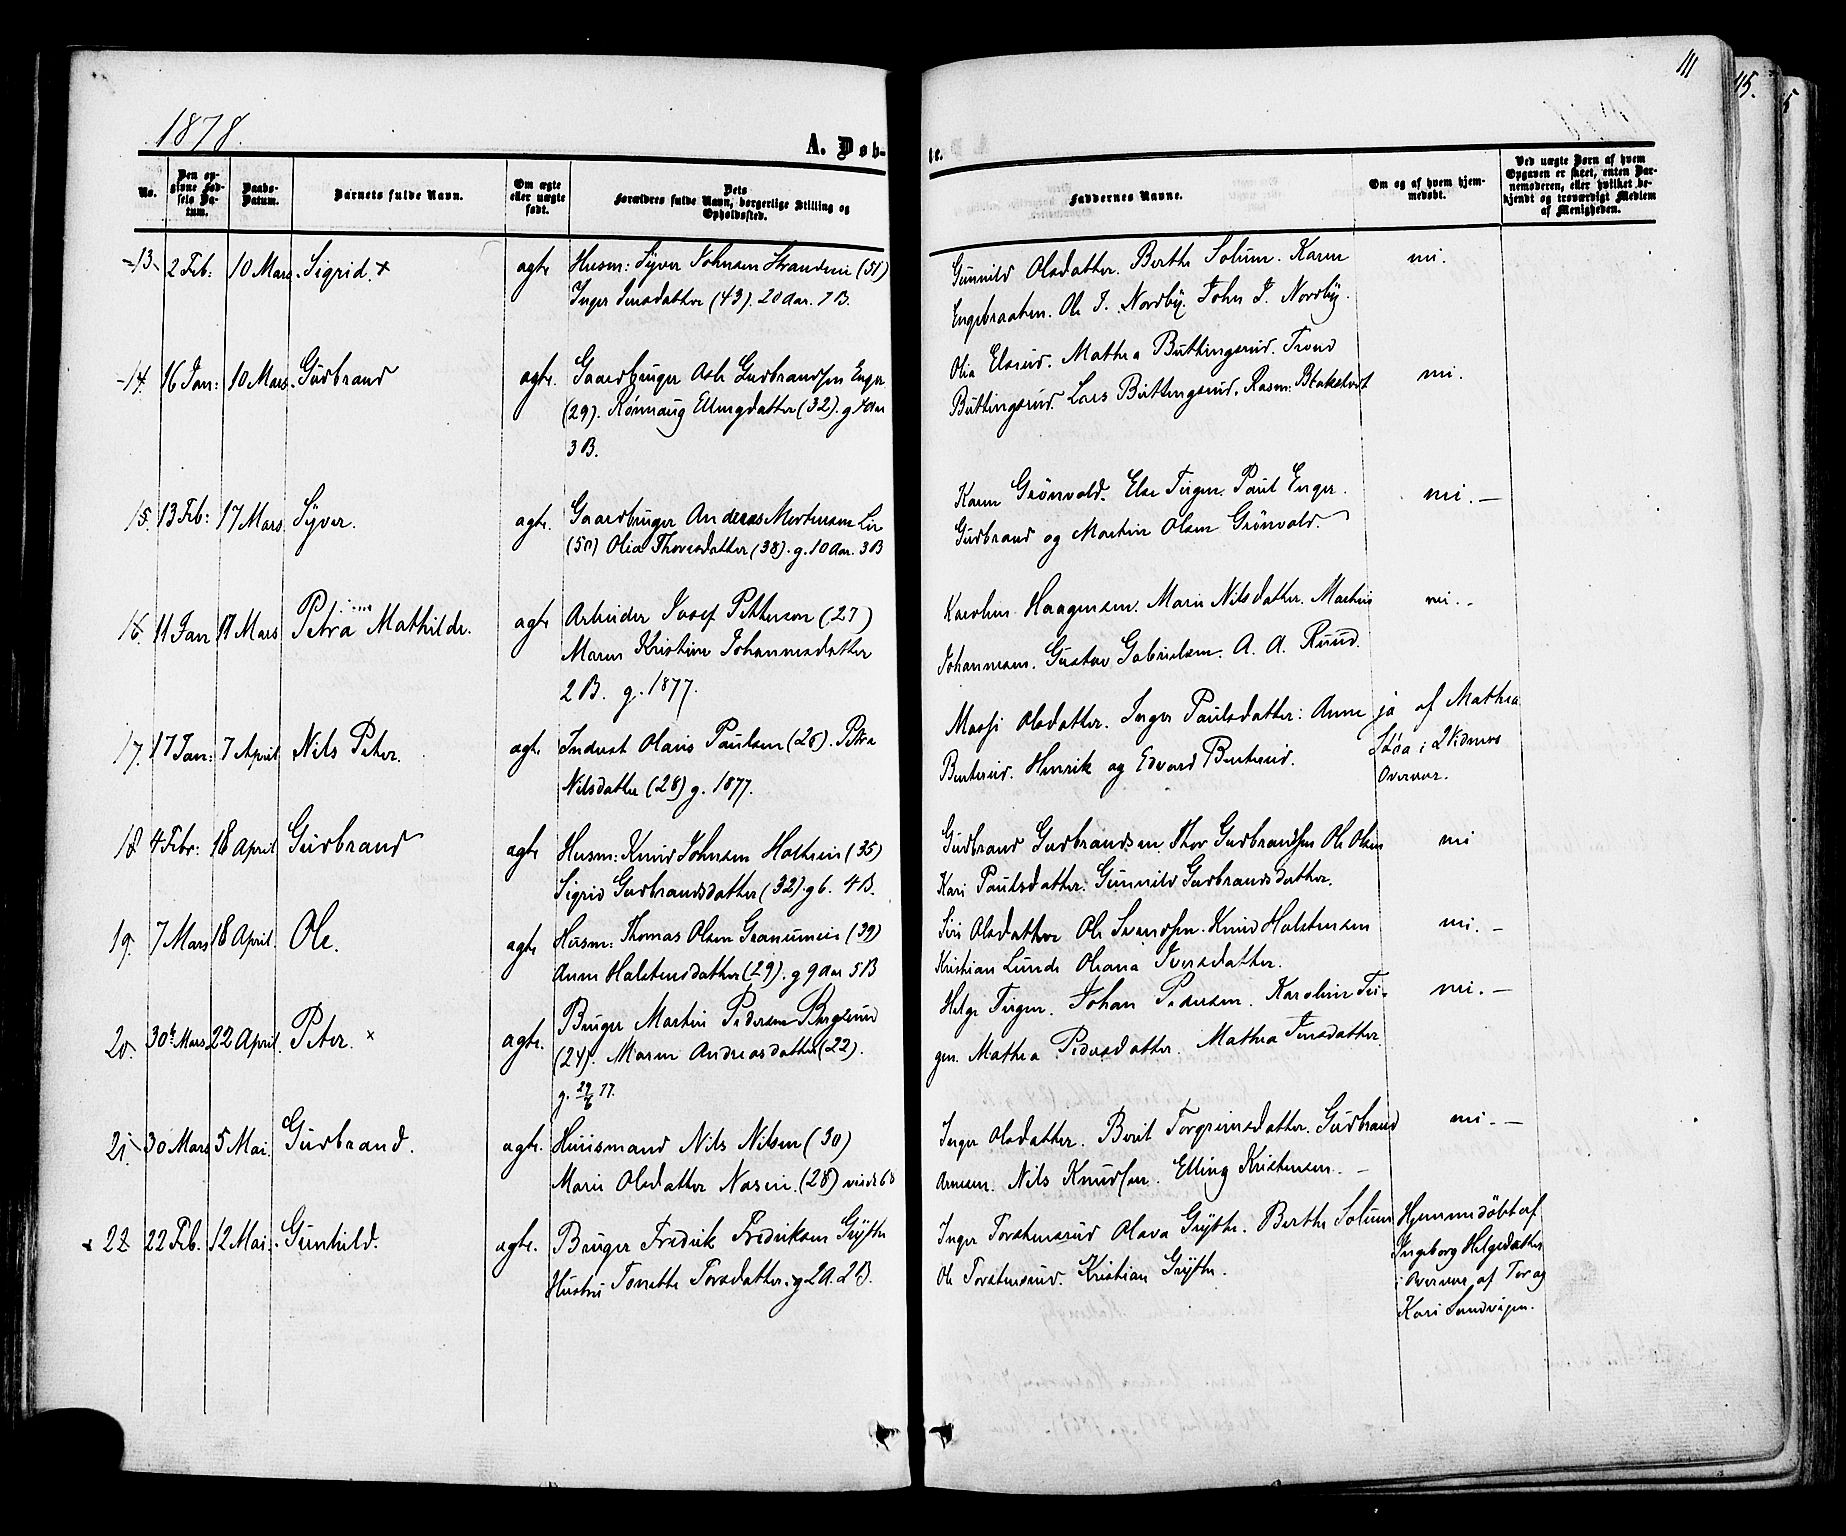 1878.
111
A. Døb-
te.
No.
Den op-
givne Fød-
sels Da-
tum.
Daabs-
Datum.
Barnets fulde Navn.
Om ægte
eller uægte
født.
Dets
Forældres fulde Navn, borgerlige Stilling og
Opholdssted.
Faddernes Navne.
Om og af hvem hjem-
medøbt.
Ved uægte Børn af hvem
Opgaven er skeet, enten Bar-
nemoderen, eller hvilket be-
kjendt og troværdigt Medlem
af Menigheden.
13. 2 Feb: 10 Mars. Sigrid. x ægte Husm: Syver Johnsen Strandeie (51)
Inger Jensdatter (43). 20 Aar. 7 B.
Gunnild Olsdatter. Berthe Solum. Karen
Engebraaten. Ole J. Nordby. John J. Nordby.
nei.
14. 16 Jan: 10 Mars. Gudbrand ægte. Gaardbruger Asle Gudbrandsen Enger
(29). Rønnaug Ellingdatter (32). g
3 B.
Olia Elsrud. Mathea Buttingsrud. Trond
Buttingsrud. Lars Buttingsrud. Rasm:
nei.
15. 13 Feb: 17 Mars. Syver. ægte. Gaardbruger Anders Mortensen Lie
(50) Olia Thoresdatter (38). g. 10 Aar. 3 B
Karen Grønvold. Else Tirgen. Paul Enger.
Gudbrand og Martin Olsen Grønvold.
nei. —
16. 11 Jan 17 Mars Petra Mathilde. ægte Arbeider Josef Petterson (27)
Maren Kristine Johannesdatter
2 B. g. 1877.
Karoline Haagensen. Marie Nilsdatter. Martin
Johannesen. Gustav Gabrielsen. A. A. Ruud.
nei. -
17. 17 Jan: 7 April Nils Peter. ægte Inderst Olaus Paulsen (26). Petra
Nilsdatter (28) g. 1877.
Olsdatter. Inger Paulsdatter: Anne
Benterud. Henrik og Edvard Benterud.
ja af Mathea
i 2 Vidners
Overvær.
18. 4 Febr: 18 April Gudbrand ægte Husm: Knud Johnsen Holteeie (35)
Sigrid Gudbrandsdatter (32). g 6. 4 B.
Gudbrand Gudbrandsen. Thor Gudbrandsen Ole Olsen
Kari Paulsdatter. Gunnild Gudbrandsdatter.
nei
19. 7 Mars 18 April. Ole. ægte Husm: Thomas Olsen Granumeie (39)
Anne Halstensdatter (29). g 9 Aar 5 B
Siri Olsdatter Ole Svendsen. Knud Halstensen
Kristian Lunde Oleana Iversdatter.
nei. —
20. 30te Mars 22 April. Peter. x ægte. Bruger Martin Pedersen Bergsund
(24). Maren Andreasdatter (22).
g. 29/6 77.
Helge Tirgen. Johan Pedersen. Karoline Tir-
gen. Mathea Pedersdatter. Mathea Jensdatter.
nei. —
21. 30 Mars 5 Mai. Gudbrand. ægte. Huusmand Nils Nilsen (30)
Marie Olsdatter Næseie. (28) viede 68
Inger Olsdatter. Berit Torgrimsdatter. Gudbrand
Arnesen. Nils Knudsen. Elling Kristensen. —
nei. —
22 22 Feb. 12 Mai. Gunhild. ægte. Bruger Fredrik Fredriksen Grythe
Hustru Tonette Torsdatter. g 2 A. 2 B.
Inger Torstensrud Olava Grythe. Berthe Solum
Ole Torstensrud. Kristian Grythe.
Hjemmedøbt af
Ingeborg Helgesdatter
i Overvær af Tor og
Kari Sandvigen.